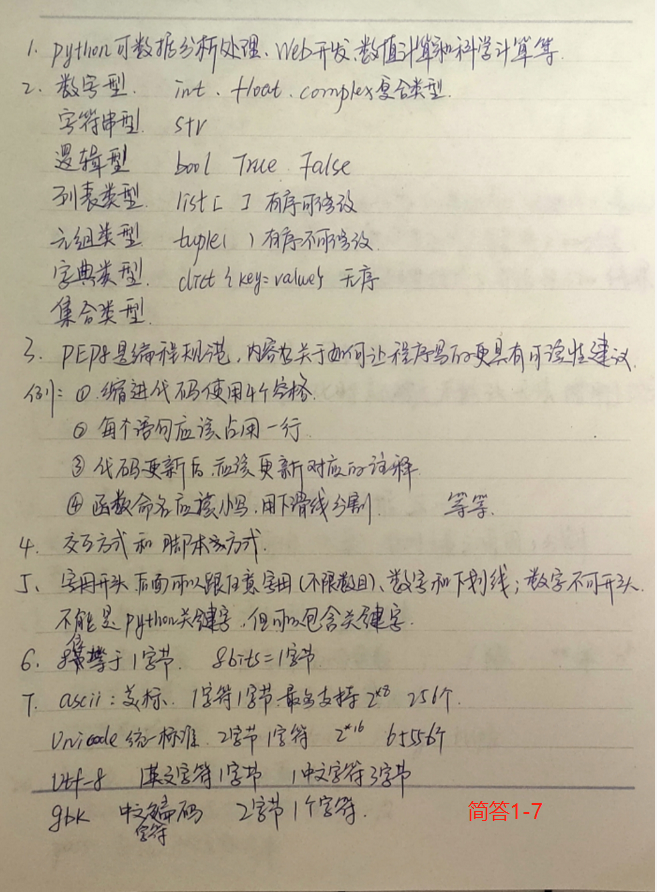 1. python可数据分析处理、Web开发、数值计算和科学计算等.
2. 数字型. int . float . complex复合类型.
字符串型 str
逻辑型 bool True False
列表类型. list[ ] 有序可修改
元组类型 tuple( ) 有序不可修改
字典类型. dict {key=value} 无序
集合类型.
3. PEP8是编程规范, 内容为关于如何让程序写的更具有可读性建议.
例: ① 缩进代码使用4个空格.
② 每个语句应该占用一行
③ 代码更新后, 应该更新对应的注释
④ 函数命名应该小写, 用下滑线分割 等等.
4. 交互方式和脚本方式.
5. 字母开头 后面可以跟任意字母(不限数目)、数字和下划线; 数字不可开头.
不能是python关键字, 但可以包含关键字.
6. 8位等于1字节. 8bits=1字节
7. ascii: 美标. 1字符1字节. 最多支持 2**8 256个.
Unicode 统一标准. 2字节1字符 2**16 65536个
Utf-8 1英文字符1字节 1中文字符3字节
gbk 中文字符编码 2字节1个字符.
简答1-7